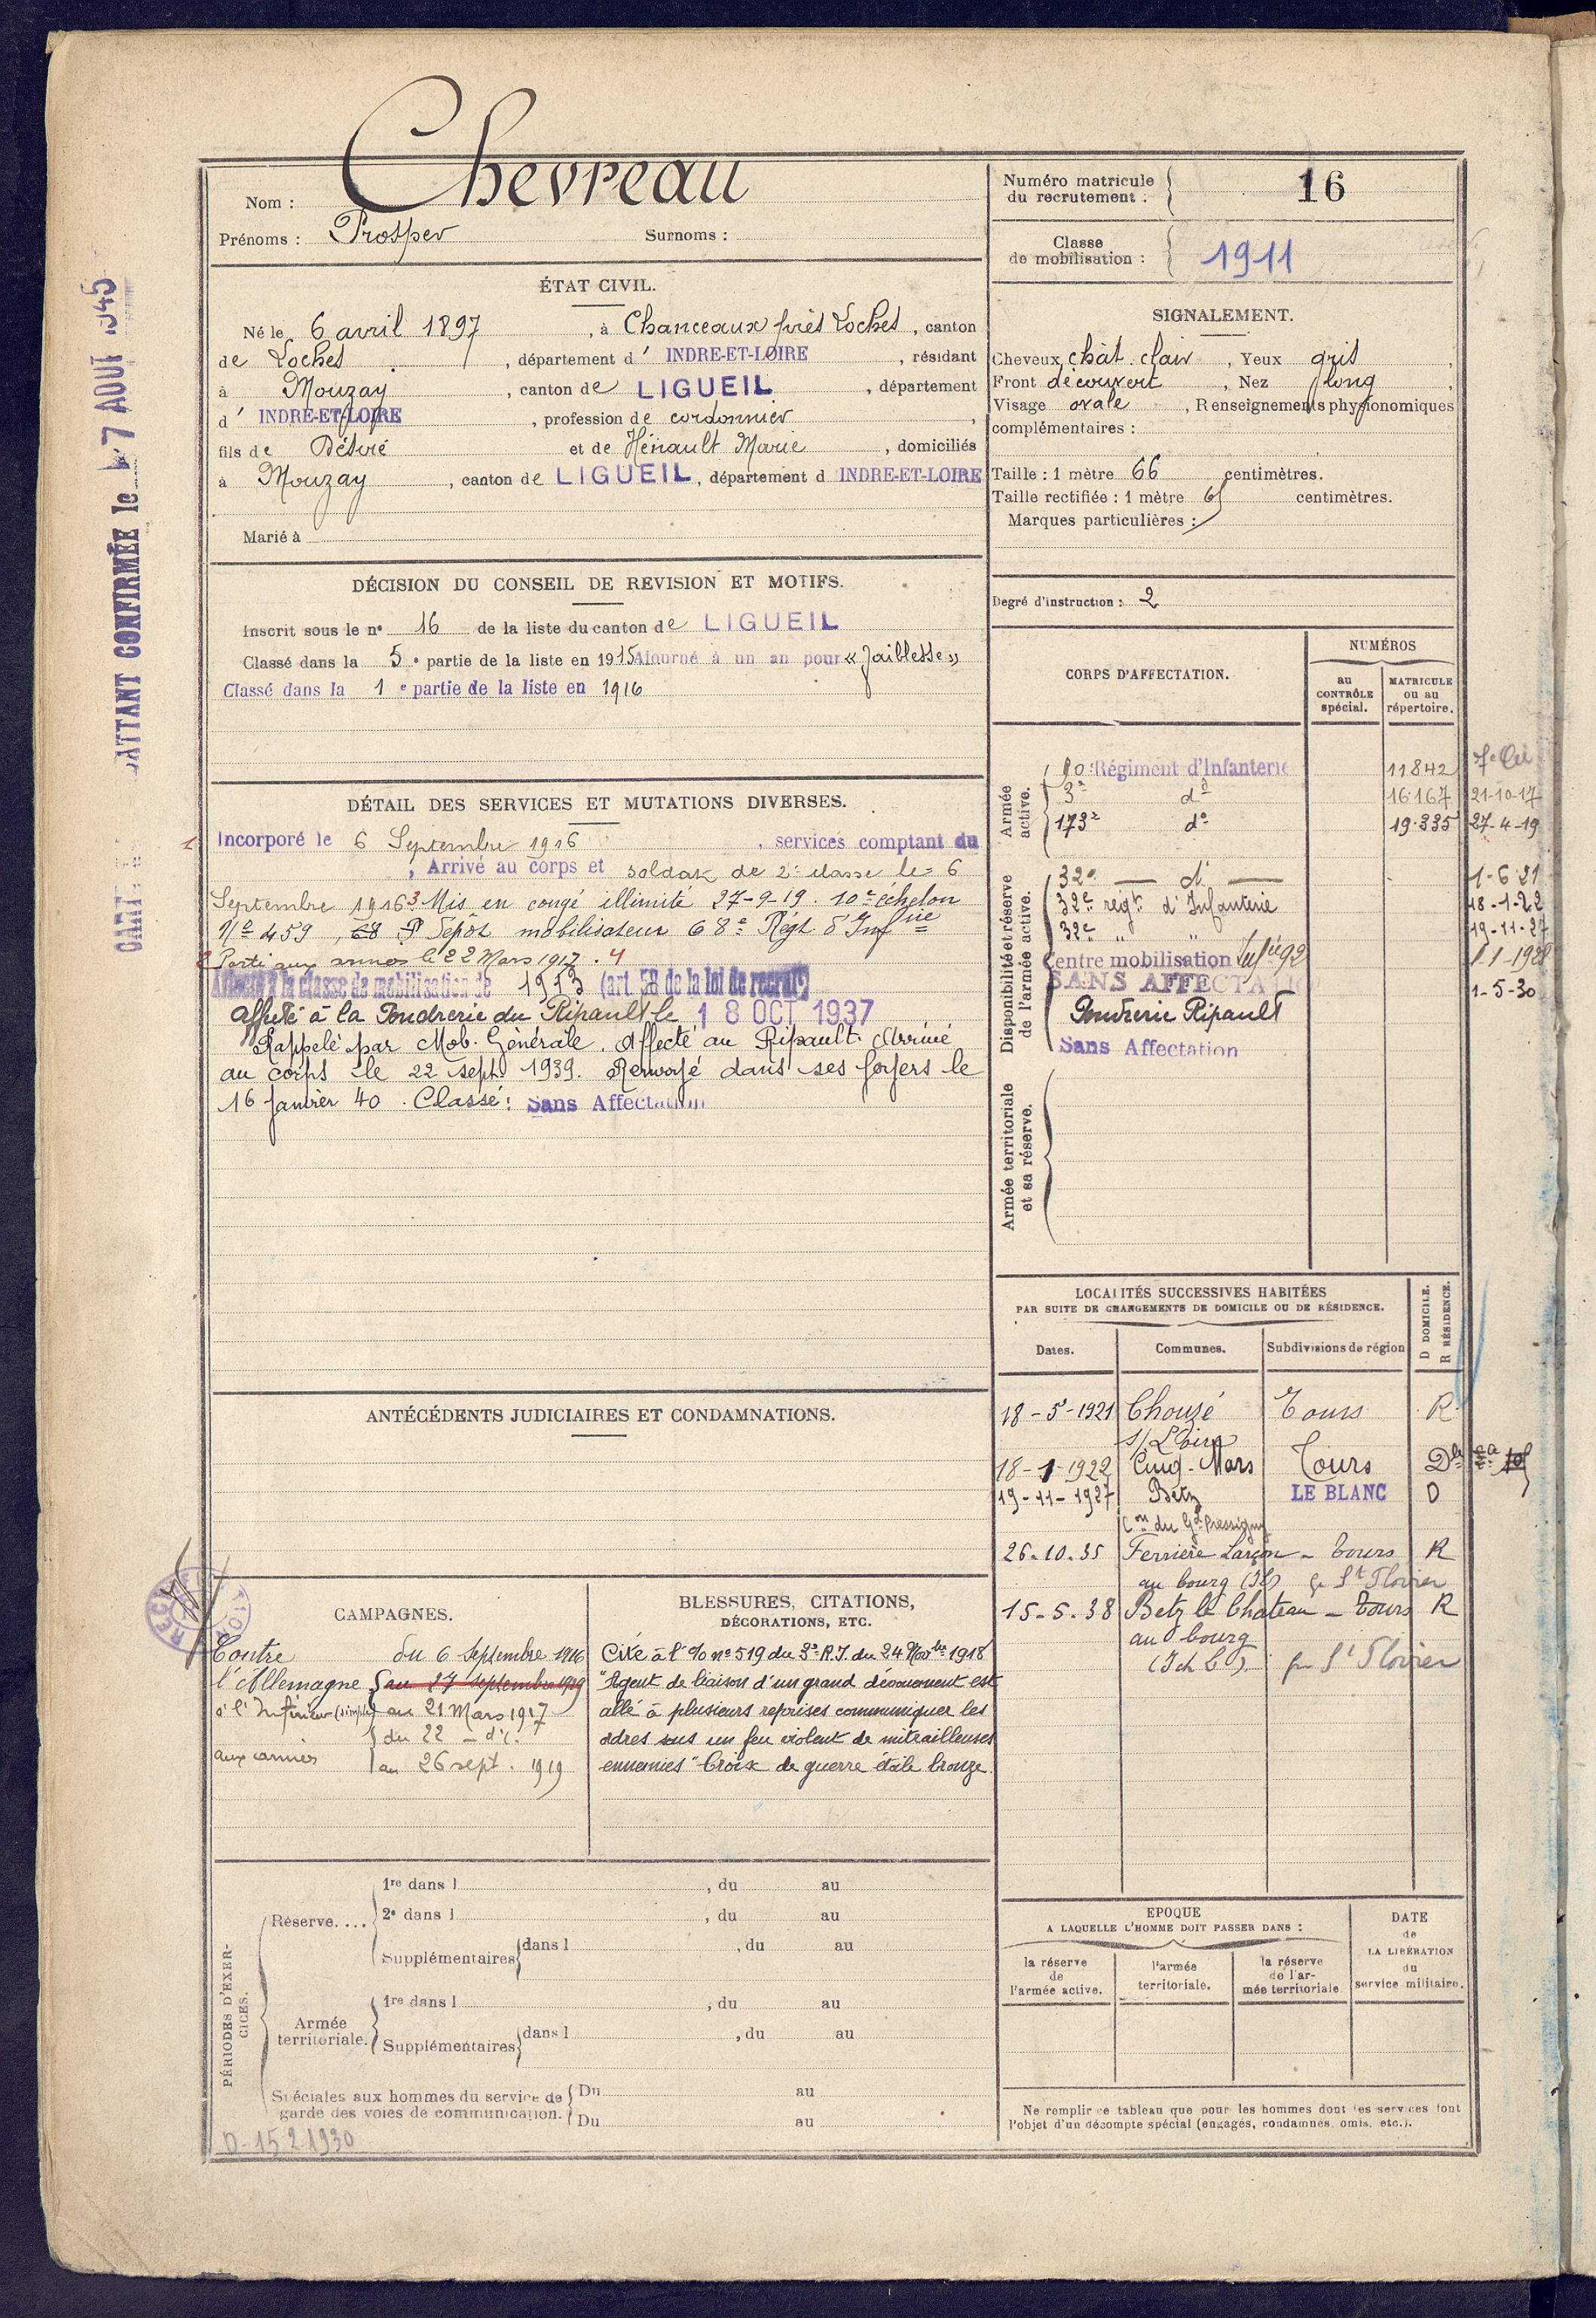 Nom : Chevreau
Prénoms : Prosper Surnoms :
ÉTAT CIVIL.
Né le 6 avril 1897, à Chanceaux près Loches, canton
de Loches, département d' INDRE-ET-LOIRE, résidant
à Mouzay, canton de LIGUEIL, département
d' INDRE-ET-LOIRE, profession de cordonnier,
fils de Désiré et de Hénault Marie, domiciliés
à Mouzay, canton de LIGUEIL, département d INDRE-ET-LOIRE
Marié à
DÉCISION DU CONSEIL DE REVISION ET MOTIFS.
Inscrit sous le n° 16 de la liste du canton de LIGUEIL
Classé dans la 5e partie de la liste en 1915 Ajourné à un an pour « faiblesse »
Classé dans la 1e partie de la liste en 1916
DÉTAIL DES SERVICES ET MUTATIONS DIVERSES.
1 Incorporé le 6 Septembre 1916, services comptant du
, Arrivé au corps et soldat de 2e classe le 6
Septembre 1916 3 Mis en congé illimité 27-9-19. 10e échelon
N° 459, Dépôt mobilisateur 68e Régt d'Infie
2 Parti aux armées le 22 Mars 1917. 4
Affecté à la classe de mobilisation de 1913 (art. 58 de la loi de recrut)
Affecté à la Poudrerie du Ripault le 18 OCT 1937
Rappelé par Mob. Générale. Affecté au Ripault. Arrivé
au corps le 22 sept 1939. Renvoyé dans ses foyers le
16 Janvier 40. Classé : Sans Affectation
ANTÉCÉDENTS JUDICIAIRES ET CONDAMNATIONS.
CAMPAGNES.
Contre du 6 Septembre 1916
l'Allemagne au 27 Septembre 1919
à l'Intérieur (simple) au 21 Mars 1917
du 22 - do.
aux armées au 26 sept. 1919
BLESSURES, CITATIONS,
DÉCORATIONS, ETC.
Cité à l'% n° 519 du 3e R.I. du 24 Novbre 1918
"Agent de liaison d'un grand dévouement est
allé à plusieurs reprises communiquer les
ordres sous un feu violent de mitrailleuses
ennemies" Croix de guerre étoile bronze.
PÉRIODES D'EXERCICES.
Réserve....
1re dans l , du au
2e dans l , du au
Supplémentaires dans l , du au
Armée territoriale.
1re dans l , du au
Supplémentaires dans l , du au
Spéciales aux hommes du service de Du au
garde des voies de communication. Du au
D-15 2 1930
Numéro matricule
du recrutement : 16
Classe
de mobilisation : 1911
SIGNALEMENT.
Cheveux chât. clair, Yeux gris,
Front découvert, Nez long,
Visage ovale, Renseignements physionomiques
complémentaires :
Taille : 1 mètre 66 centimètres.
Taille rectifiée : 1 mètre centimètres.
Marques particulières :
Degré d'instruction : 2
CORPS D'AFFECTATION.
NUMÉROS
au CONTRÔLE spécial.
MATRICULE ou au répertoire.
Armée active.
Régiment d'Infanterie 11842
3e do 16.167 21-10-17
173e do 19.335 27-4-19
Disponibilité et réserve de l'armée active.
32e — do — 1-6-21
32e régt d'Infanterie 18-1-22
32e " " 19-11-27
Centre mobilisation Infrie 92 1-1-1928
SANS AFFECTATION 1-5-30
Poudrerie Ripault
Sans Affectation
Armée territoriale et sa réserve.
LOCALITÉS SUCCESSIVES HABITÉES
PAR SUITE DE CHANGEMENTS DE DOMICILE OU DE RÉSIDENCE.
Dates. Communes. Subdivisions de région D DOMICILE. R RÉSIDENCE.
18-5-1921 Chouzé Tours R
s/ Loire
18-1-1922 Cinq-Mars Tours
19-11-1927 Betz LE BLANC D
Con du Gd Pressigny
26.10.35 Ferrière Larçon - Tours R
au bourg St Flovier
15-5.38 Betz le Chateau - Tours R
au bourg
St Flovier
EPOQUE
A LAQUELLE L'HOMME DOIT PASSER DANS :
la réserve de l'armée active.
l'armée territoriale.
la réserve de l'armée territoriale
DATE de LA LIBÉRATION du service militaire.
Ne remplir ce tableau que pour les hommes dont les services font
l'objet d'un décompte spécial (engagés, condamnés, omis, etc.).
ATTANT CONFIRMÉE le 7 AOUT 1945